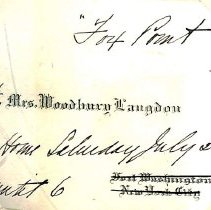 "Fox Point
Mrs. Woodbury Langdon
Home Saturday July
6
Fort Washington
New York City